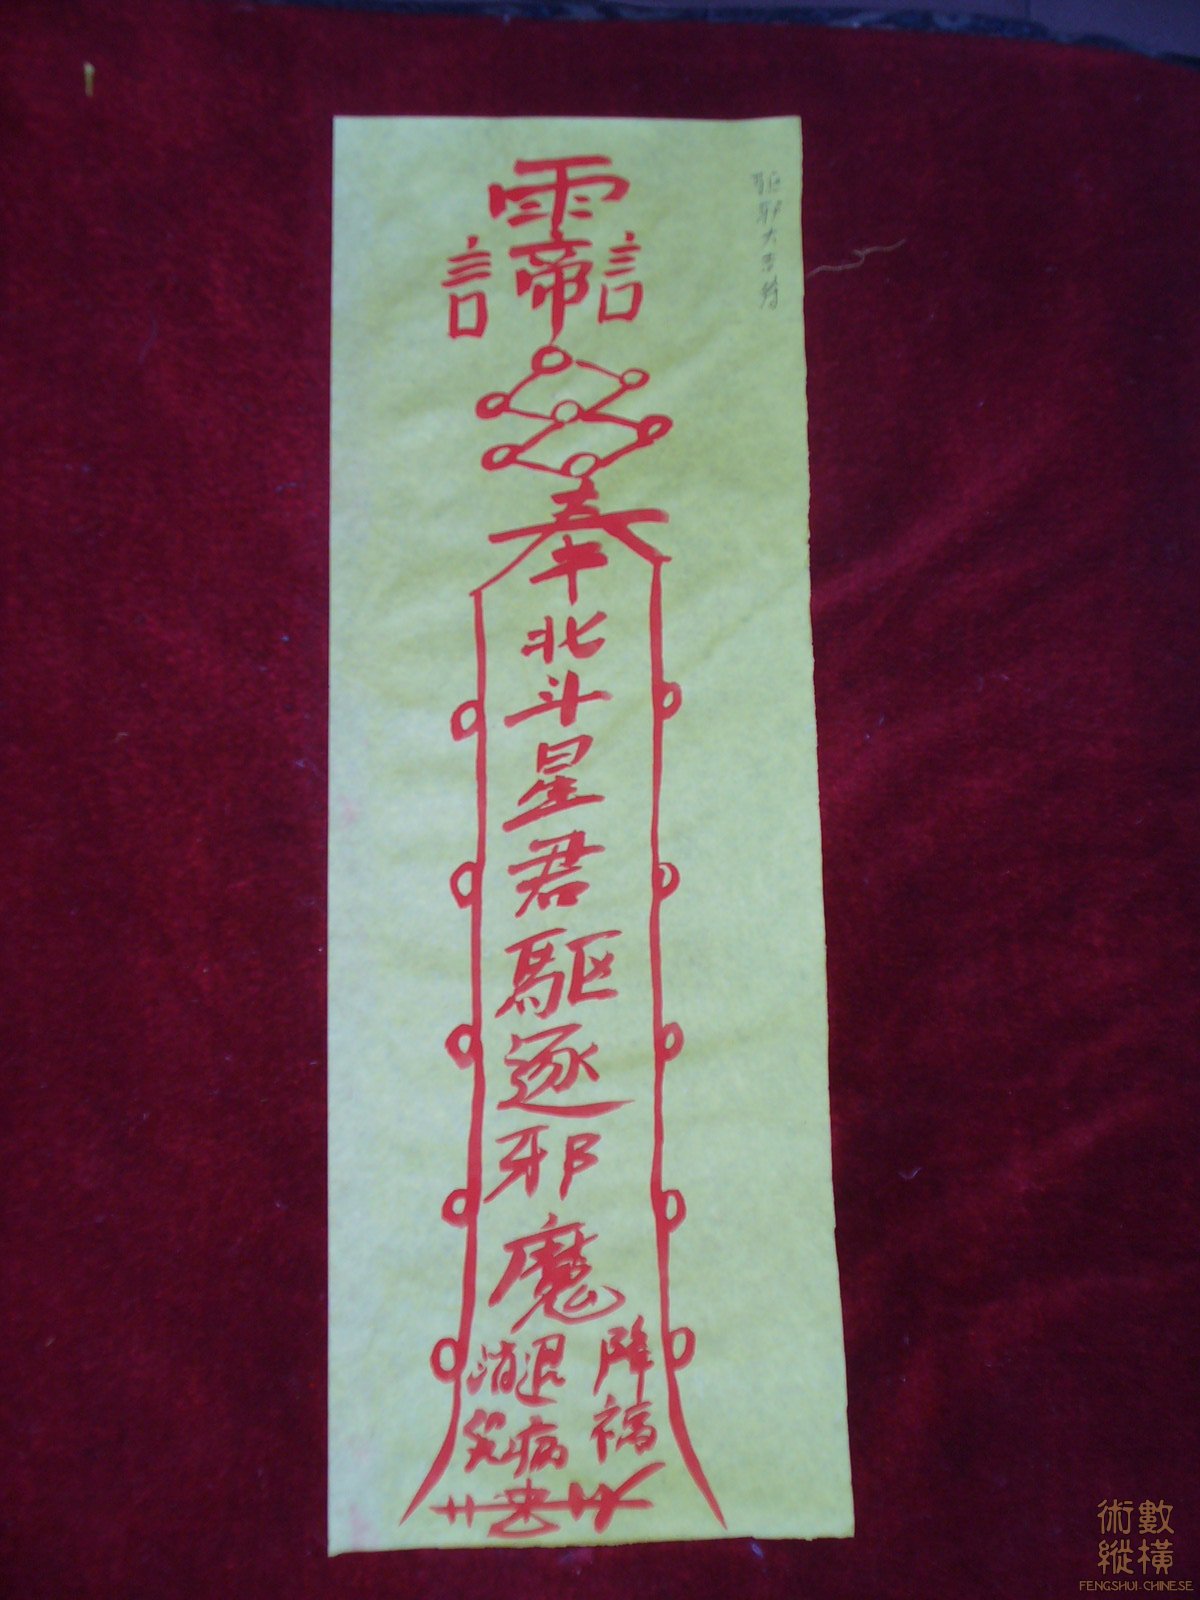 雨
言帝言
奉
北斗星君驅逐邪魔
降福
退病
消災
驅邪大吉符
術數
縱橫
FENGSHUI-CHINESE